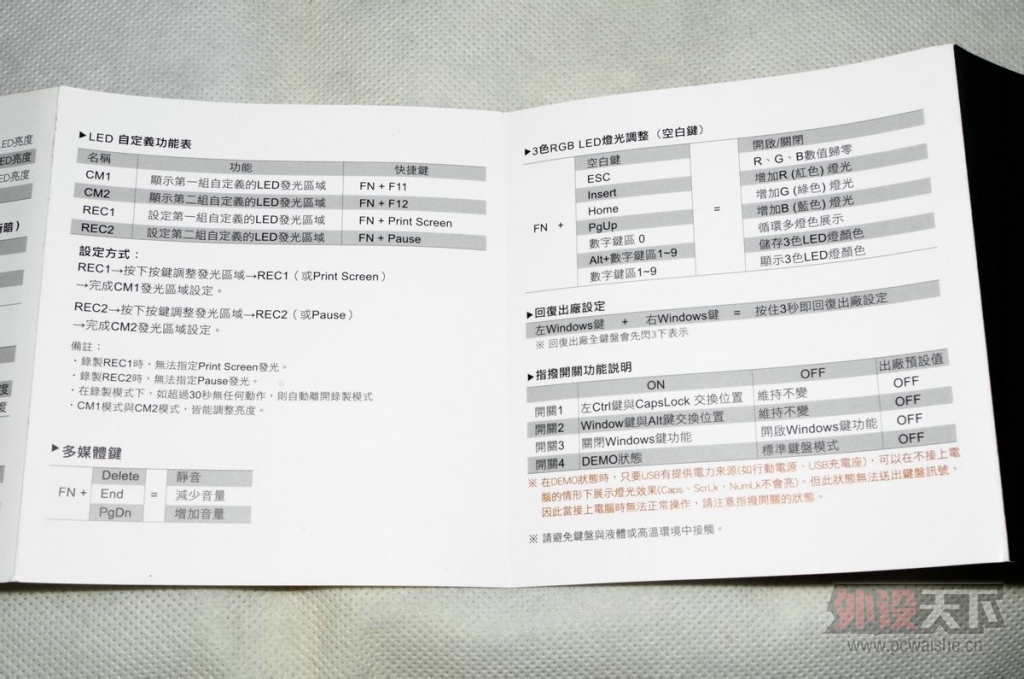 ED亮度
ED亮度
ED亮度
暗）
度
度
▶LED 自定義功能表
名稱 功能 快捷鍵
CM1 顯示第一組自定義的LED發光區域 FN + F11
CM2 顯示第二組自定義的LED發光區域 FN + F12
REC1 設定第一組自定義的LED發光區域 FN + Print Screen
REC2 設定第二組自定義的LED發光區域 FN + Pause
設定方式：
REC1→按下按鍵調整發光區域→REC1（或Print Screen）
→完成CM1發光區域設定。
REC2→按下按鍵調整發光區域→REC2（或Pause）
→完成CM2發光區域設定。
備註：
・錄製REC1時，無法指定Print Screen發光。
・錄製REC2時，無法指定Pause發光。
・在錄製模式下，如超過30秒無任何動作，則自動離開錄製模式
・CM1模式與CM2模式，皆能調整亮度。
▶多媒體鍵
Delete 靜音
FN + End = 減少音量
PgDn 增加音量
▶3色RGB LED燈光調整（空白鍵）
空白鍵 開啟/關閉
ESC R、G、B數值歸零
Insert 增加R (紅色) 燈光
Home 增加G (綠色) 燈光
FN + PgUp = 增加B (藍色) 燈光
數字鍵區 0 循環多燈色展示
Alt+數字鍵區1~9 儲存3色LED燈顏色
數字鍵區1~9 顯示3色LED燈顏色
▶回復出廠設定
左Windows鍵 + 右Windows鍵 = 按住3秒即回復出廠設定
※ 回復出廠全鍵盤會先閃3下表示
▶指撥開關功能說明
ON OFF 出廠預設值
開關1 左Ctrl鍵與CapsLock 交換位置 維持不變 OFF
開關2 Window鍵與Alt鍵交換位置 維持不變 OFF
開關3 關閉Windows鍵功能 開啟Windows鍵功能 OFF
開關4 DEMO狀態 標準鍵盤模式 OFF
※ 在DEMO狀態時，只要USB有提供電力來源(如行動電源、USB充電座)，可以在不接上電
腦的情形下展示燈光效果(Caps、ScrLk、NumLk不會亮)。但此狀態無法送出鍵盤訊號，
因此當接上電腦時無法正常操作，請注意指撥開關的狀態。
※ 請避免鍵盤與液體或高溫環境中接觸。
外设天下
www.pcwaishe.cn